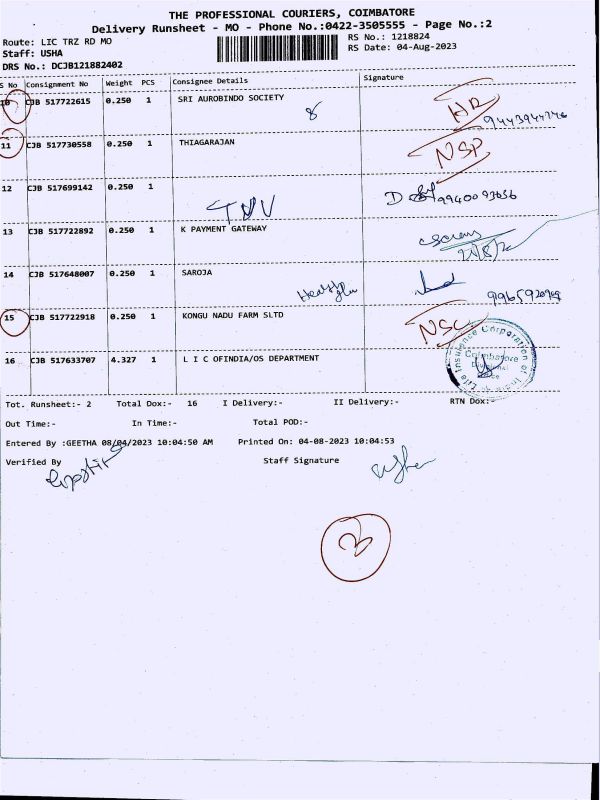 THE PROFESSIONAL COURIERS, COIMBATORE
Delivery Runsheet - MO - Phone No.:0422-3505555 - Page No.:2
Route: LIC TRZ RD MO
RS No.: 1218824
Staff: USHA
RS Date: 04-Aug-2023
DRS No.: DCJB121882402
S No Consignment No Weight PCS Consignee Details Signature
10 CJB 517722615 0.250 1 SRI AUROBINDO SOCIETY
8
11 CJB 517730558 0.250 1 THIAGARAJAN NSP
12 CJB 517699142 0.250 1
13 CJB 517722892 0.250 1 K PAYMENT GATEWAY
14 CJB 517648007 0.250 1 SAROJA
15 CJB 517722918 0.250 1 KONGU NADU FARM SLTD NSC
16 CJB 517633707 4.327 1 L I C OFINDIA/OS DEPARTMENT
Life Insurance Corporation of India
Coimbatore
Divisional
Office
Tot. Runsheet:- 2 Total Dox:- 16 I Delivery:- II Delivery:- RTN Dox:-
Out Time:- In Time:- Total POD:-
Entered By :GEETHA 08/04/2023 10:04:50 AM Printed On: 04-08-2023 10:04:53
Verified By Staff Signature